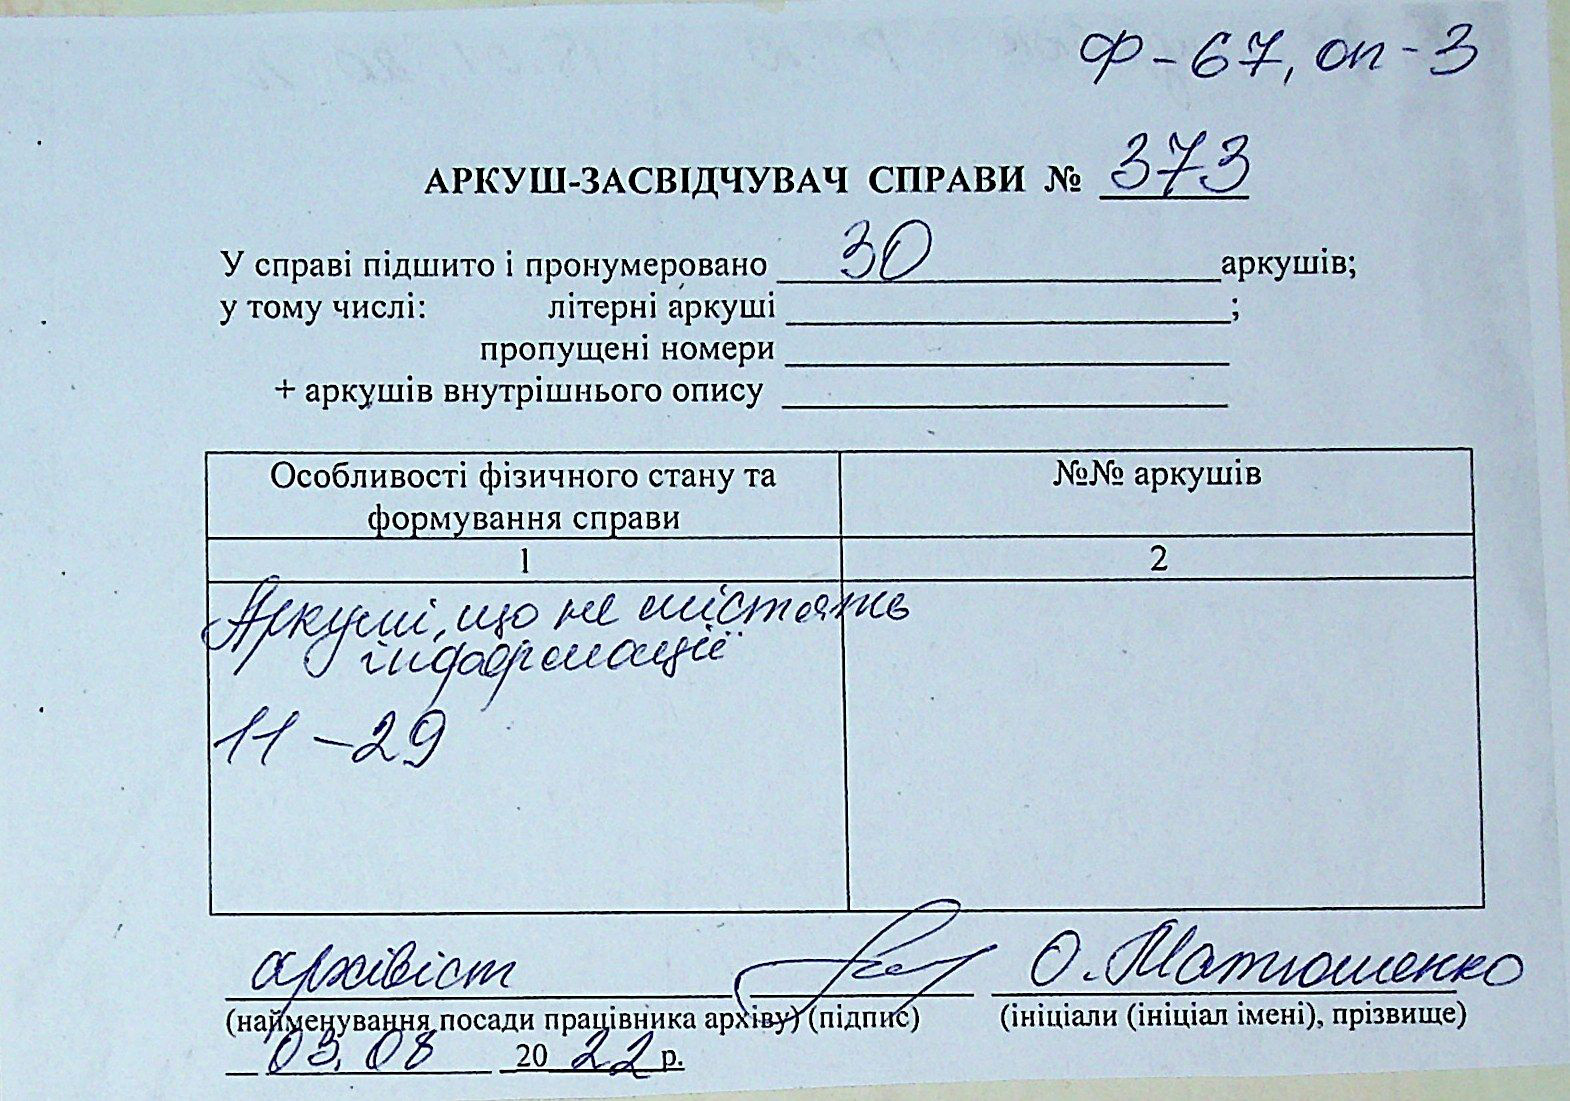 Ф-67, оп-3
АРКУШ-ЗАСВІДЧУВАЧ СПРАВИ № 373
У справі підшито і пронумеровано 30 аркушів;
у тому числі: літерні аркуші ;
пропущені номери
+ аркушів внутрішнього опису
Особливості фізичного стану та формування справи
№№ аркушів
1 2
Аркуші, що не містять
інформації
11-29
архівіст О. Матюшенко
(найменування посади працівника архіву) (підпис) (ініціали (ініціал імені), прізвище)
03.08 2022 р.